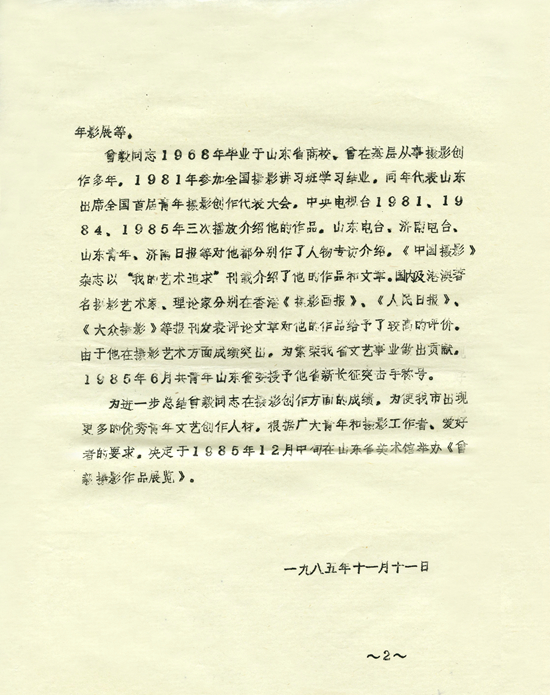 年影展等。
曾毅同志1968年毕业于山东省商校、曾在基层从事摄影创
作多年，1981年参加全国摄影讲习班学习结业，同年代表山东
出席全国首届青年摄影创作代表大会。中央电视台1981、1
984、1985年三次播放介绍他的作品。山东电台、济南电台、
山东青年、济南日报等对他都分别作了人物专访介绍。《中国摄影》
杂志以“我的艺术追求”刊载介绍了他的作品和文章。国内及港澳著
名摄影艺术家、理论家分别在香港《摄影画报》、《人民日报》、
《大众摄影》等报刊发表评论文章对他的作品给予了较高的评价。
由于他在摄影艺术方面成绩突出，为繁荣我省文艺事业做出贡献，
1985年6月共青年山东省委授予他省新长征突击手称号。
为进一步总结曾毅同志在摄影创作方面的成绩，为使我市出现
更多的优秀青年文艺创作人材，根据广大青年和摄影工作者、爱好
者的要求，决定于1985年12月中旬在山东省美术馆举办《曾
毅摄影作品展览》。
一九八五年十一月十一日
～2～